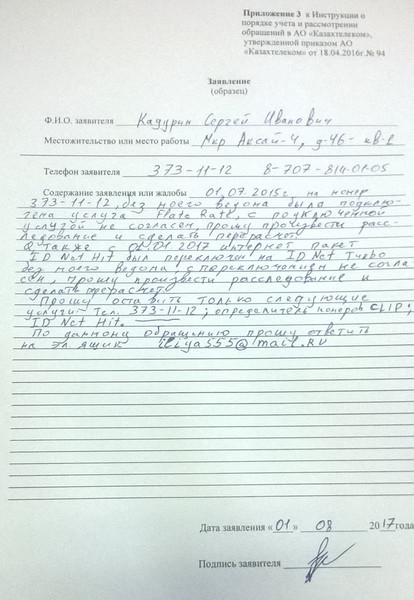 Приложение 3 к Инструкции о
порядке учета и рассмотрении
обращений в АО «Казахтелеком»,
утвержденной приказом АО
«Казахтелеком» от 18.04.2016г.№ 94
Заявление
(образец)
Ф.И.О. заявителя Кадурин Сергей Иванович
Местожительство или место работы Мкр Аксай-4, д-46- кв-2
Телефон заявителя 373-11-12 8-707-814-01-05
Содержание заявления или жалобы 01.07.2015г. на номер
373-11-12, без моего ведома была подклю-
чена услуга Flate Rate, с подключенной
услугой не согласен, прошу произвести расс-
ледование и сделать перерасчет.
Также с 01.01.2017 интернет пакет
ID Net Hit был переключен на ID Net Turbo
без моего ведома, с переключением не согла
сен, прошу произвести расследование и
сделать перерасчет.
Прошу оставить только следующие
услуги: Тел. 373-11-12; определитель номеров CLIP;
ID Net Hit.
По данному обращению прошу ответить
на эл ящик iliya555@mail.RU
Дата заявления «01» 08 2017года
Подпись заявителя